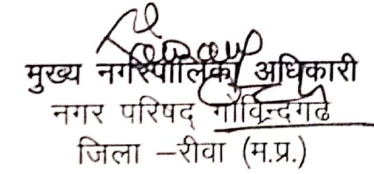 मुख्य नगरपालिका अधिकारी
नगर परिषद गोविन्दगढ
जिला –रीवा (म.प्र.)